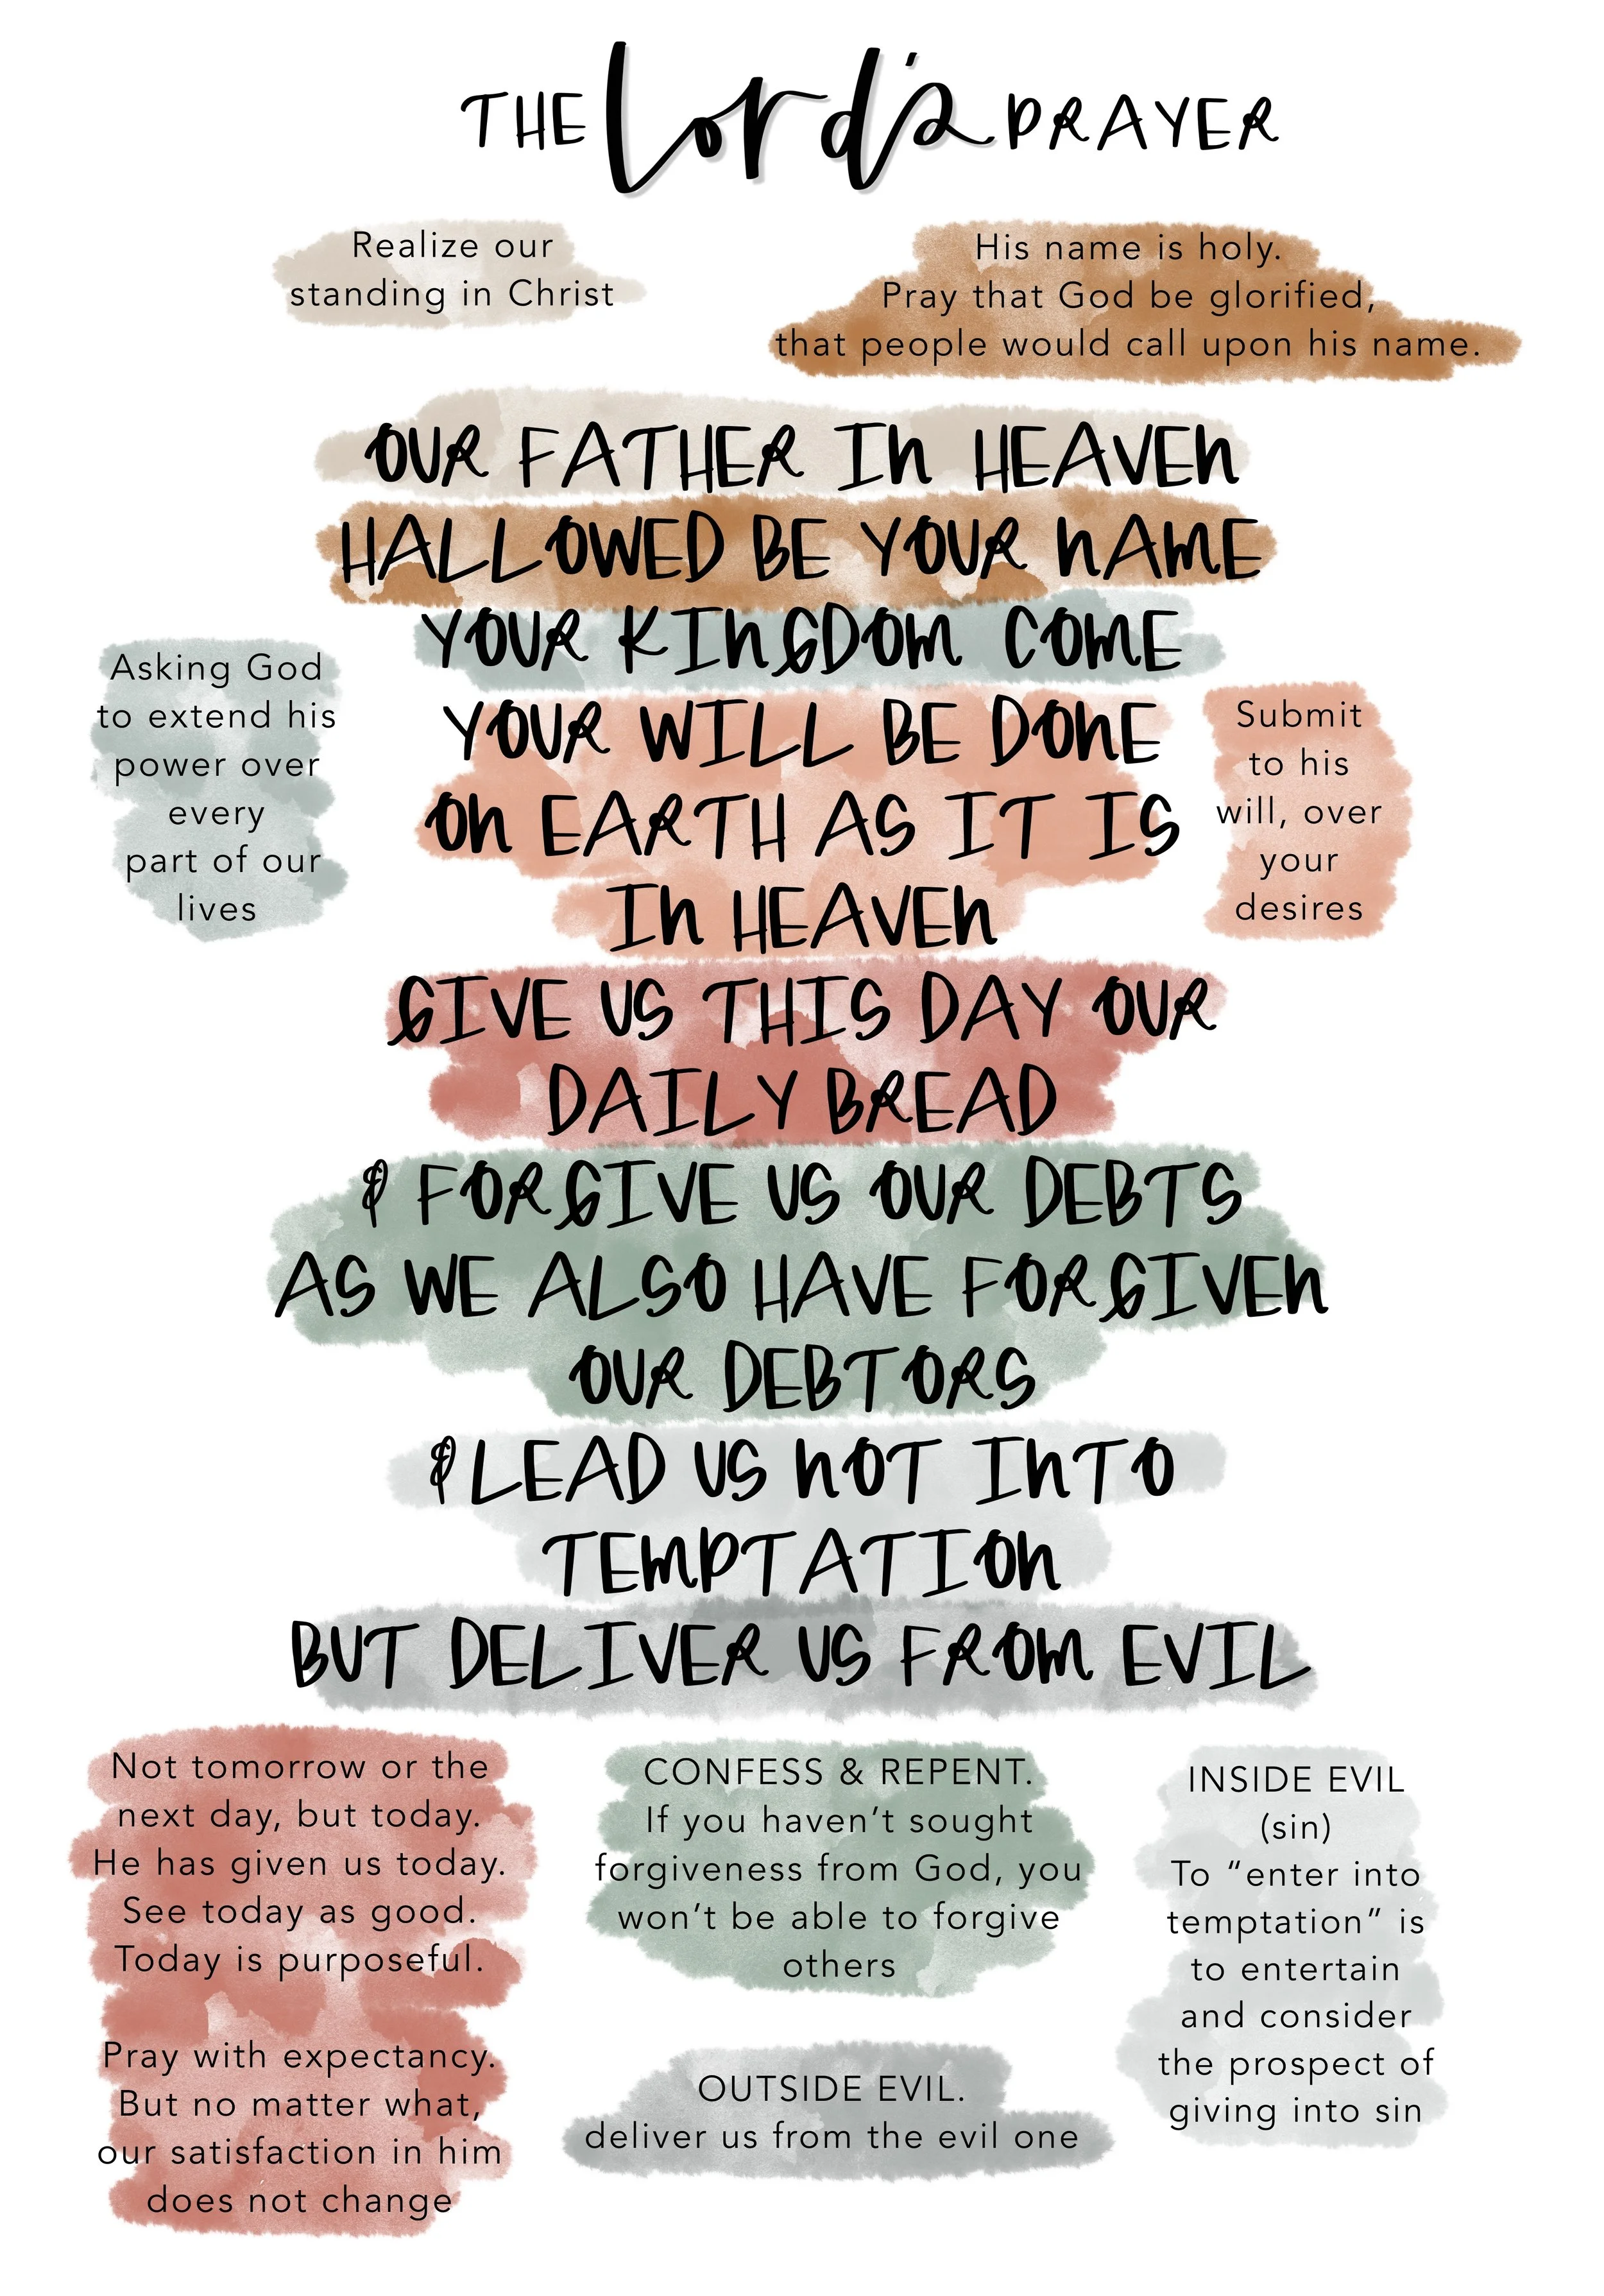 THE Lord's PRAYER
Realize our
standing in Christ
His name is holy.
Pray that God be glorified,
that people would call upon his name.
OUR FATHER IN HEAVEN
HALLOWED BE YOUR NAME
YOUR KINGDOM COME
YOUR WILL BE DONE
ON EARTH AS IT IS
IN HEAVEN
GIVE US THIS DAY OUR
DAILY BREAD
& FORGIVE US OUR DEBTS
AS WE ALSO HAVE FORGIVEN
OUR DEBTORS
& LEAD US NOT INTO
TEMPTATION
BUT DELIVER US FROM EVIL
Asking God
to extend his
power over
every
part of our
lives
Submit
to his
will, over
your
desires
Not tomorrow or the
next day, but today.
He has given us today.
See today as good.
Today is purposeful.
Pray with expectancy.
But no matter what,
our satisfaction in him
does not change
CONFESS & REPENT.
If you haven't sought
forgiveness from God, you
won't be able to forgive
others
OUTSIDE EVIL.
deliver us from the evil one
INSIDE EVIL
(sin)
To “enter into
temptation” is
to entertain
and consider
the prospect of
giving into sin